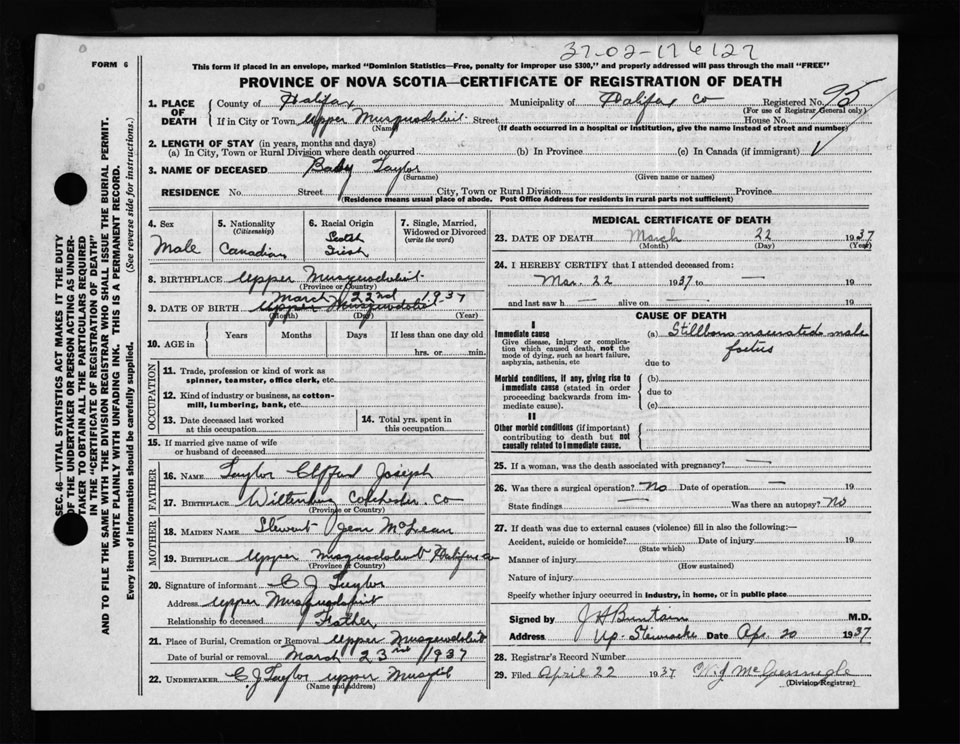 37-02-174127
FORM 6
This form if placed in an envelope, marked "Dominion Statistics—Free, penalty for improper use $300," and properly addressed will pass through the mail "FREE"
PROVINCE OF NOVA SCOTIA—CERTIFICATE OF REGISTRATION OF DEATH
SEC. 46—VITAL STATISTICS ACT MAKES IT THE DUTY
OF THE UNDERTAKER OR PERSON ACTING AS UNDER-
TAKER TO OBTAIN ALL THE PARTICULARS REQUIRED
IN THE "CERTIFICATE OF REGISTRATION OF DEATH"
AND TO FILE THE SAME WITH THE DIVISION REGISTRAR WHO SHALL ISSUE THE BURIAL PERMIT.
WRITE PLAINLY WITH UNFADING INK. THIS IS A PERMANENT RECORD.
Every item of information should be carefully supplied. (See reverse side for instructions.)
1. PLACE OF DEATH County of Halifax Municipality of Halifax Co Registered No. 95
(For use of Registrar General only)
If in City or Town Upper Musquodoboit Street House No.
(Name) (If death occurred in a hospital or institution, give the name instead of street and number)
2. LENGTH OF STAY (in years, months and days)
(a) In City, Town or Rural Division where death occurred (b) In Province (c) In Canada (if immigrant)
3. NAME OF DECEASED Baby Taylor
(Surname) (Given name or names)
RESIDENCE No. Street City, Town or Rural Division Province
(Residence means usual place of abode. Post Office Address for residents in rural parts not sufficient)
4. Sex Male
5. Nationality (Citizenship) Canadian
6. Racial Origin Scotch Irish
7. Single, Married, Widowed or Divorced (write the word)
8. BIRTHPLACE Upper Musquodoboit
(Province or Country)
9. DATE OF BIRTH March 22nd 1937
Upper Musquodoboit
(Month) (Day) (Year)
10. AGE in Years Months Days If less than one day old
hrs. or min.
OCCUPATION
11. Trade, profession or kind of work as
spinner, teamster, office clerk, etc.
12. Kind of industry or business, as cotton-
mill, lumbering, bank, etc.
13. Date deceased last worked
at this occupation
14. Total yrs. spent in
this occupation
15. If married give name of wife
or husband of deceased
FATHER
16. NAME Taylor Clifford Joseph
17. BIRTHPLACE Colchester Co
(Province or Country)
MOTHER
18. MAIDEN NAME Stewart Jean McLean
19. BIRTHPLACE Upper Musquodoboit Halifax Co
(Province or Country)
20. Signature of informant C J Taylor
Address Upper Musquodoboit
Relationship to deceased Father
21. Place of Burial, Cremation or Removal Upper Musquodoboit
Date of burial or removal March 23rd 1937
22. UNDERTAKER C. J Taylor Upper
(Name and address)
MEDICAL CERTIFICATE OF DEATH
23. DATE OF DEATH March 22 1937
(Month) (Day) (Year)
24. I HEREBY CERTIFY that I attended deceased from—
Mar. 22 1937 to — 19
and last saw h — alive on — 19
CAUSE OF DEATH
I
Immediate cause
Give disease, injury or complica-
tion which caused death, not the
mode of dying, such as heart failure,
asphyxia, asthenia, etc
(a) Stillborn macerated male
foetus
due to
Morbid conditions, if any, giving rise to
immediate cause (stated in order
proceeding backwards from im-
mediate cause).
(b)
due to
(c)
II
Other morbid conditions (if important)
contributing to death but not
causally related to immediate cause.
25. If a woman, was the death associated with pregnancy? —
26. Was there a surgical operation? No Date of operation —
State findings — Was there an autopsy? No
27. If death was due to external causes (violence) fill in also the following:—
Accident, suicide or homicide? Date of injury 19
(State which)
Manner of injury
(How sustained)
Nature of injury
Specify whether injury occurred in industry, in home, or in public place
Signed by J H Buntain M.D.
Address Up. Date Apr. 20 1937
28. Registrar's Record Number
29. Filed April 22 1937
(Division Registrar)